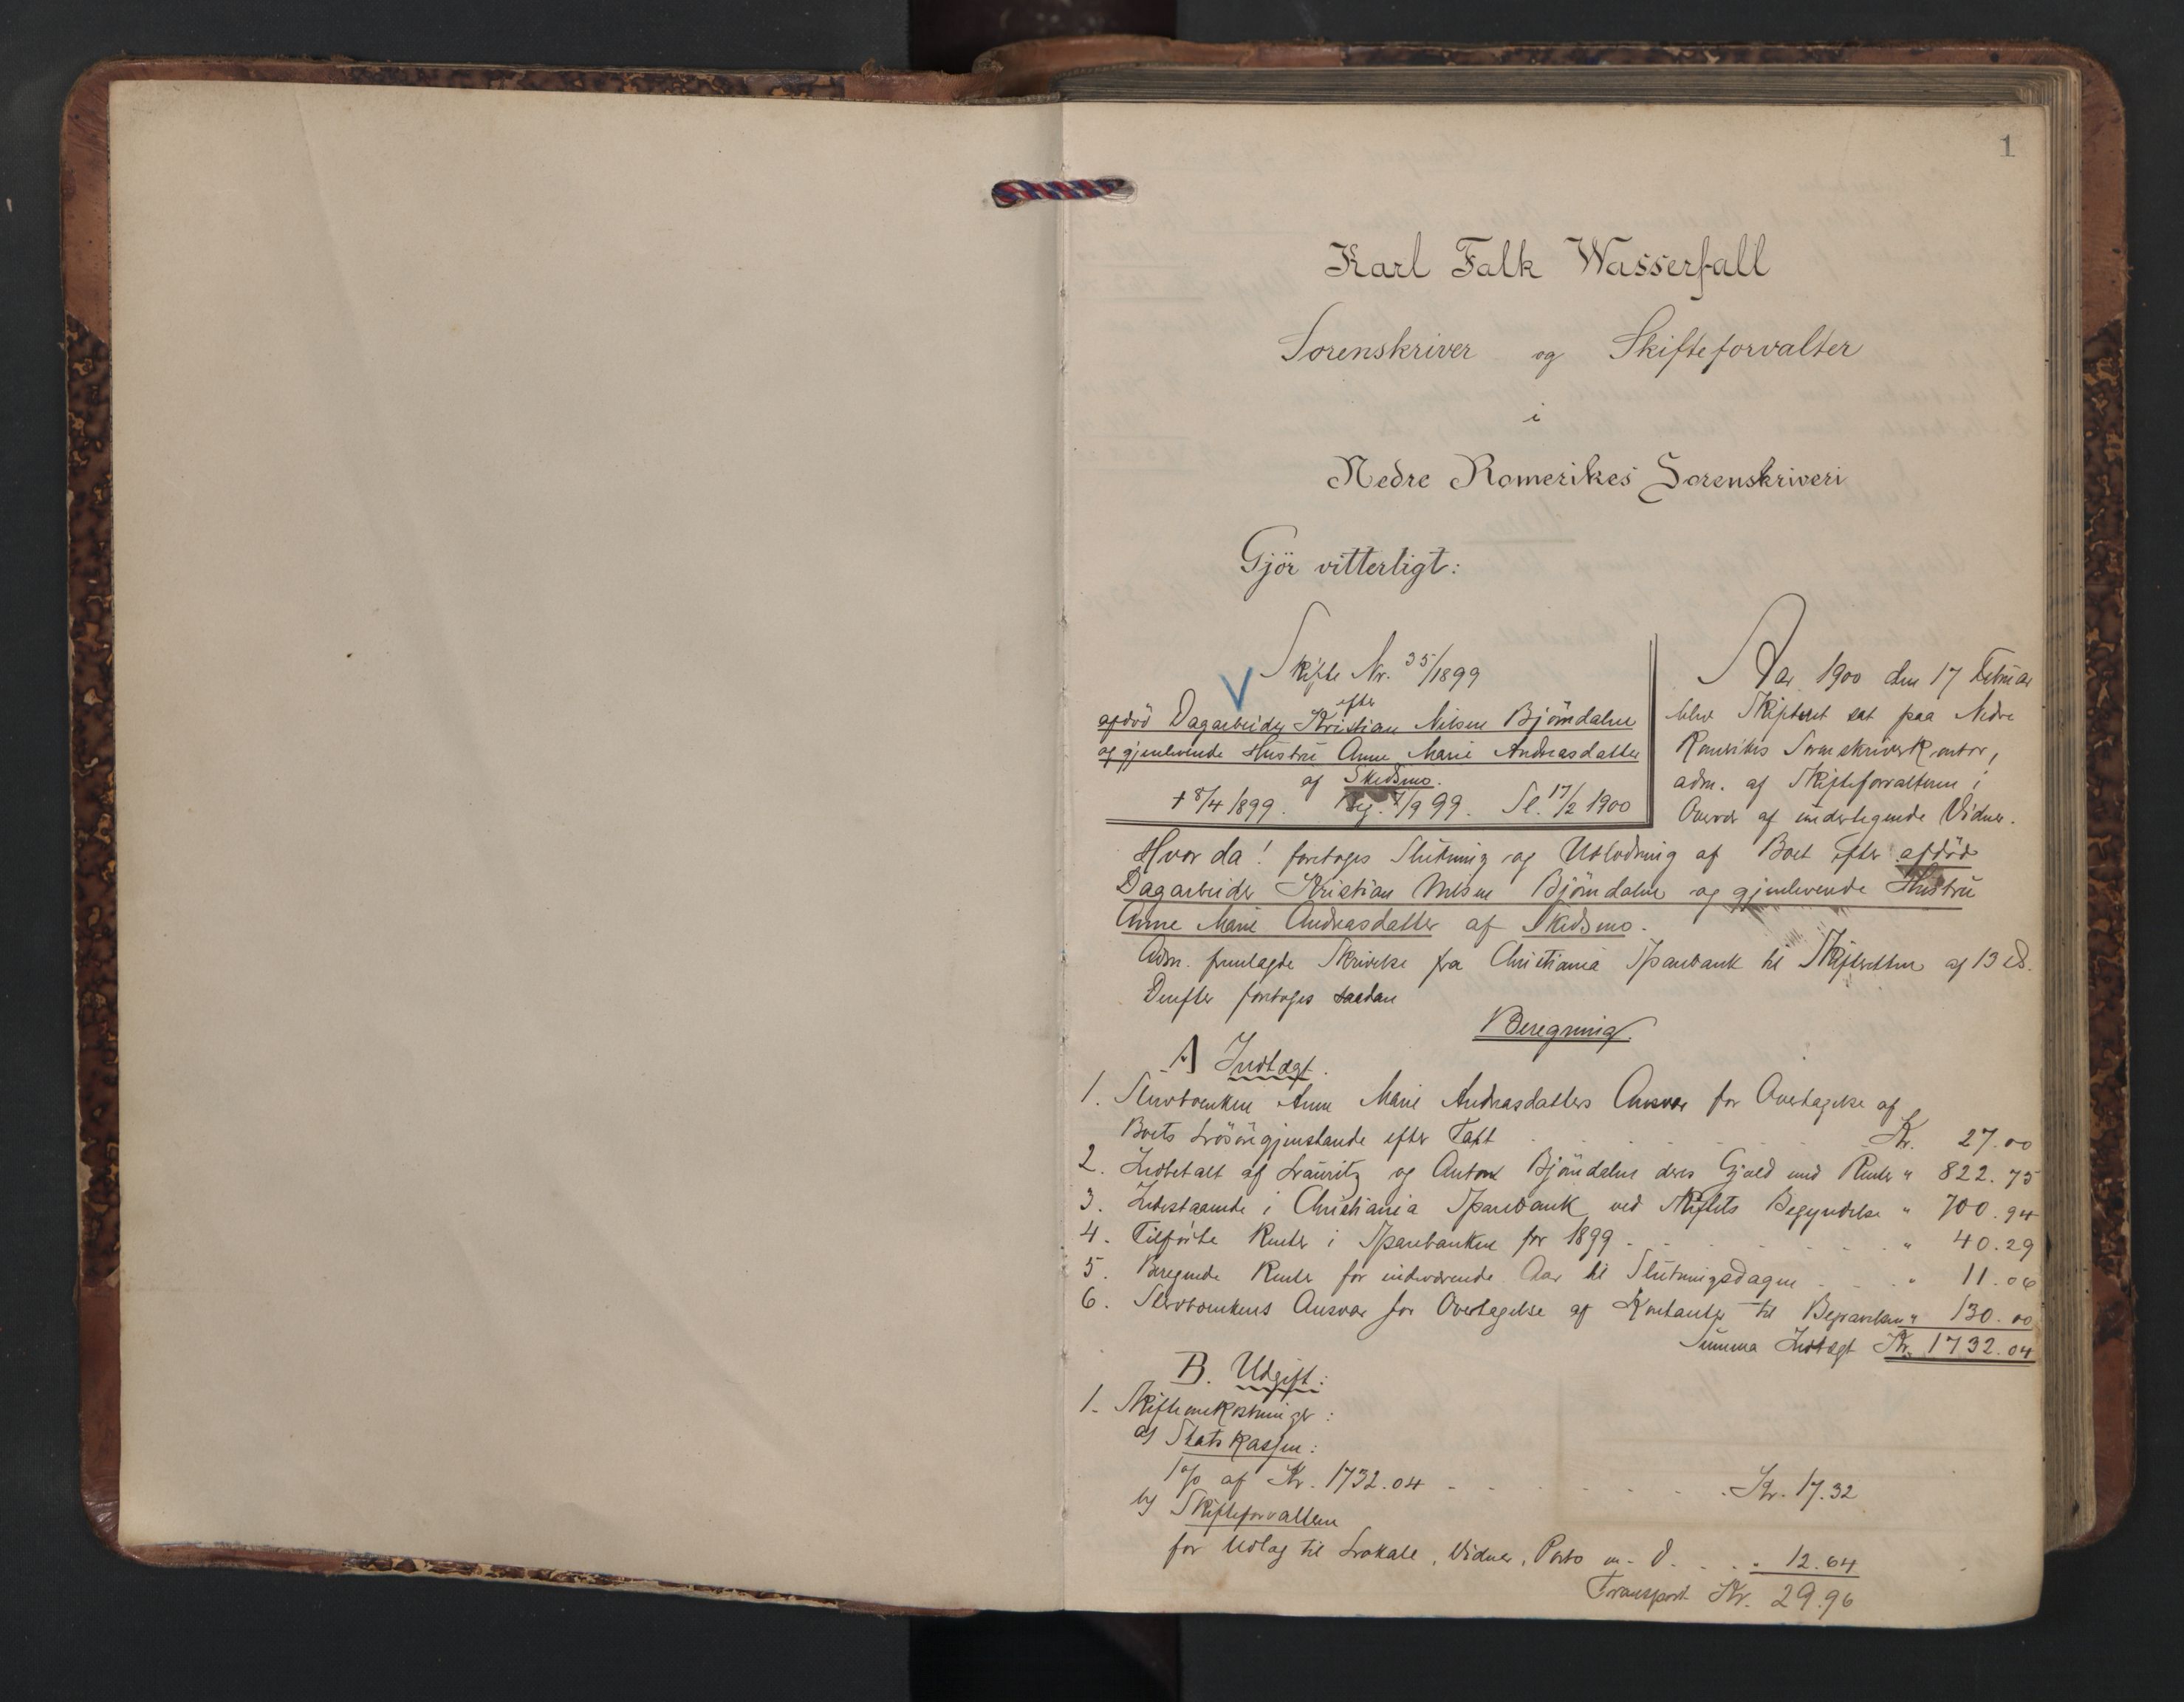 1
Karl Falk Wasserfall
Sorenskriver og Skifteforvalter
i
Nedre Romerikes Sorenskriveri
Gjör vitterligt:
Skifte Nr. 35/1899
efter
afdöd Dagarbeider Kristian Nilsen Bjömdalen
og gjenlevende Hustru Anne Marie Andreasdatter
af Skedsmo.
+ 8/4 1899. Beg. 7/9 99. Sl. 17/2 1900
Aar 1900 den 17 Februar
blev Skifteret sat paa Nedre
Romerikes Sorenskriverkontor,
adm. af Skifteforvalteren i
Overvær af undertegnede Vidner.
Hvor da! foretoges Slutning og Udlodning af Boet efter afdöd
Dagarbeider Kristian Nilsen Bjömdalen og gjenlevende Hustru
Anne Marie Andreasdatter af Skedsmo.
Adm. fremlagde Skrivelse fra Christiania Sparebank til Skifteretten af 13 ds.
Derefter foretoges saadan
Beregning.
A Indtægt.
1. Stervboenken Anne Marie Andreasdatters Ansvar for Overtagelse af
Boets Lösöregjenstande efter Taxt Kr. 27.00
2. Indbetalt af Lauritz og Anton Bjöndalen deres Gjæld med Renter " 822.75
3. Indestaaende i Christiania Sparebank ved Skiftets Begyndelse " 700.94
4. Tilförte Renter i Sparebanken for 1899 " 40.29
5. Beregnede Renter for indeværende Aar til Slutningsdagen " 11.06
6. Stervboenkens Ansvar for Overtagelse af Kontanter til Begravelsen " 130.00
Summa Indtægt Kr. 1732.04
B. Udgift:
1. Skifteomkostninger:
a) Statskassen:
1% af Kr. 1732.04 Kr. 17.32
b) Skifteforvalteren
for Udlæg til Lokale, Vidner, Porto m. v. " 12.64
Transport Kr. 29.96